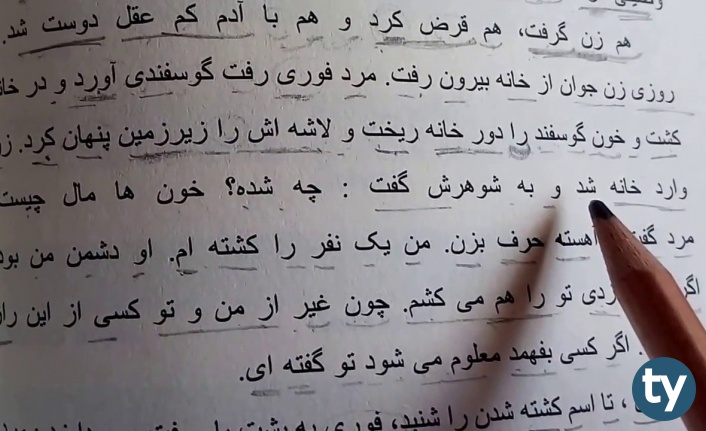 هم زن گرفت، هم قرض کرد و هم با آدم کم عقل دوست شد.
روزی زن جوان از خانه بیرون رفت. مرد فوری رفت گوسفندی آورد و در
کشت و خون گوسفند را دور خانه ریخت و لاشه اش را زیرزمین پنهان کرد.
وارد خانه شد و به شوهرش گفت : چه شده؟ خون ها مال چیست
مرد آهسته حرف بزن. من یک نفر را کشته ام. او دشمن من
تو را هم می کشم. چون غیر از من و تو کسی از این
اگر کسی بفهمد معلوم می شود تو گفته ای.
، تا اسم کشته شدن را شنید، فوری
ty